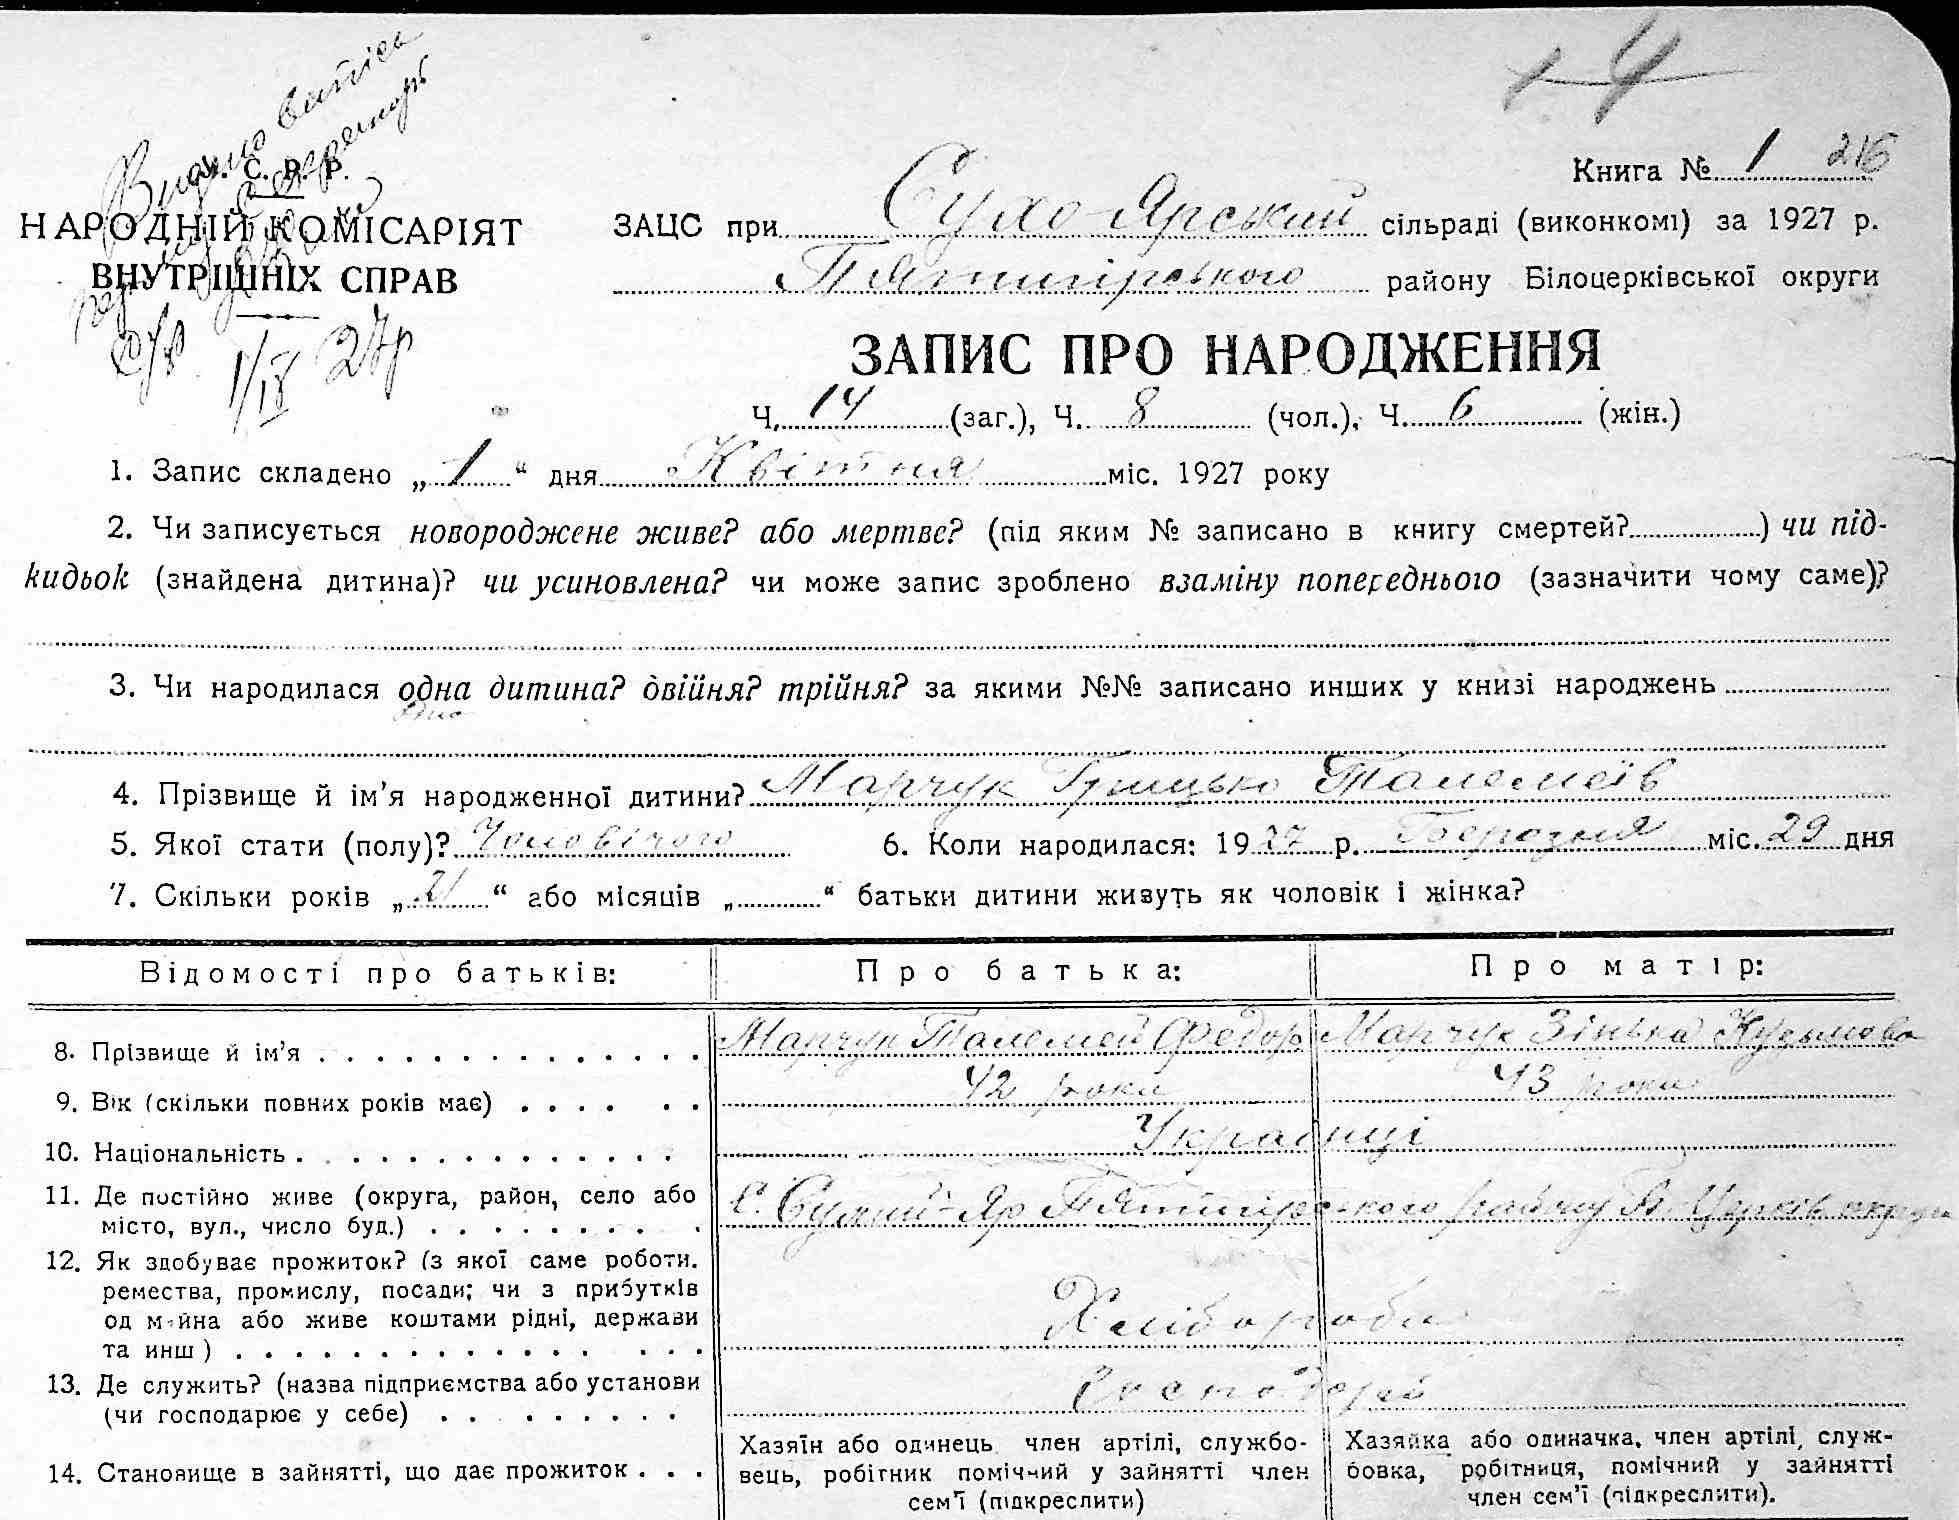 Видано витяг
С. Р. Р.
НАРОДНІЙ КОМІСАРІЯТ
ВНУТРІШНІХ СПРАВ
27р
Книга № 1 216
ЗАЦС при Сухо-Ярский сільраді (виконкомі) за 1927 р.
П'ятигірського району Білоцерківської округи
ЗАПИС ПРО НАРОДЖЕННЯ
Ч. 14 (заг.), Ч. 8 (чол.), Ч. 6 (жін.)
1. Запис складено „ 1 “ дня Квітня міс. 1927 року
2. Чи записується новороджене живе? або мертве? (під яким № записано в книгу смертей? ) чи під-
кидьок (знайдена дитина)? чи усиновлена? чи може запис зроблено взаміну попереднього (зазначити чому саме)?
3. Чи народилася одна дитина? двійня? трійня? за якими №№ записано инших у книзі народжень
одна
4. Прізвище й ім’я народженної дитини? Марчук Грицько Талемеїв
5. Якої стати (полу)? Чоловічого 6. Коли народилася: 1927 р. Березня міс. 29 дня
7. Скільки років „ 21 “ або місяців „ “ батьки дитини живуть як чоловік і жінка?
Відомості про батьків: Про батька: Про матір:
8. Прізвище й ім’я Марчук Талемей Федор Марчук Зінька
9. Вік (скільки повних років має) 42 роки 43 роки
10. Національність Українці
11. Де постійно живе (округа, район, село або
місто, вул., число буд.) С. Сухий-Яр П'ятигірського району Б. Церків округи
12. Як здобуває прожиток? (з якої саме роботи.
ремества, промислу, посади; чи з прибутків
од майна або живе коштами рідні, держави
та инш) Хлібороби
13. Де служить? (назва підприємства або установи
(чи господарює у себе) Господарі
14. Становище в зайнятті, що дає прожиток
Хазяїн або одинець член артілі, службо-
вець, робітник помічний у зайнятті член
сем’ї (підкреслити)
Хазяйка або одиначка, член артілі, служ-
бовка, робітниця, помічний у зайнятті
член сем’ї (підкреслити).